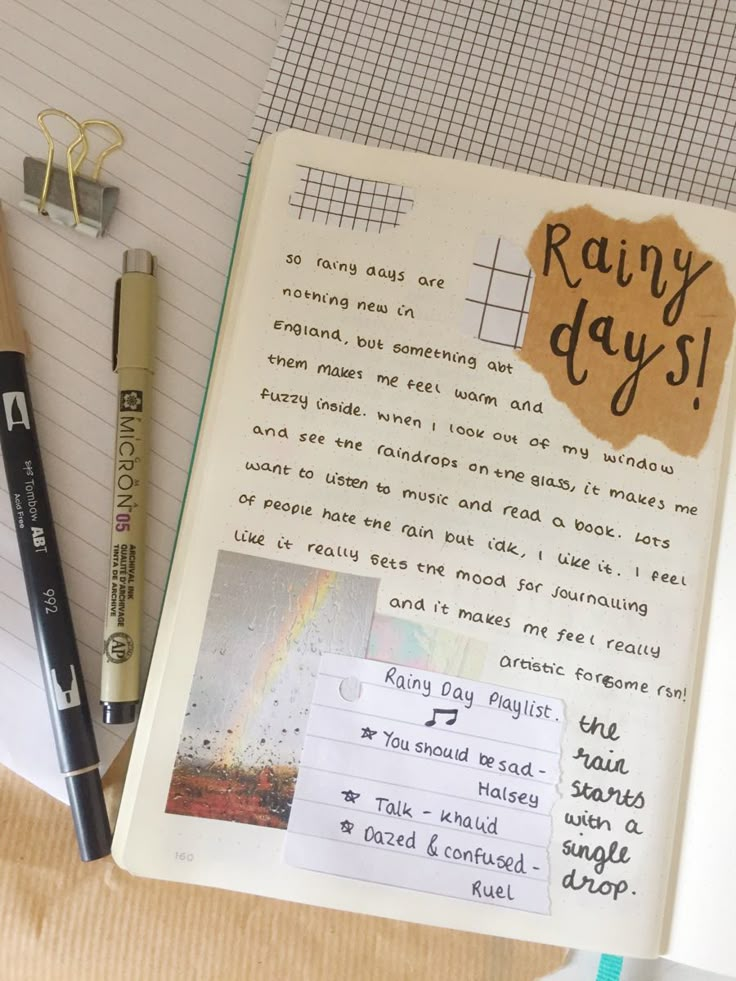 Rainy
days!
so rainy days are
nothing new in
England, but something abt
them makes me feel warm and
fuzzy inside. When I look out of my window
and see the raindrops on the glass, it makes me
want to listen to music and read a book. Lots
of people hate the rain but idk, I like it. I feel
like it really sets the mood for journalling
and it makes me feel really
artistic for some rsn!
Rainy Day Playlist.
You should be sad -
Halsey
Talk - Khalid
Dazed & confused -
Ruel
the
rain
starts
with a
single
drop.
160
Tombow ABT
Acid Free
992
PIGMA
MICRON 05
ARCHIVAL INK
QUALITÉ D'ARCHIVAGE
TINTA DE ARCHIVE
AP